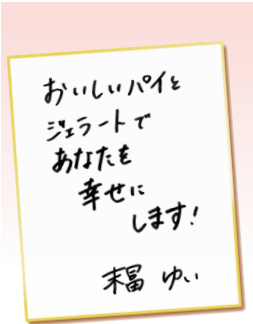 おいしいパイと
ジェラートで
あなたを
幸せに
します!
末冨 ゆい